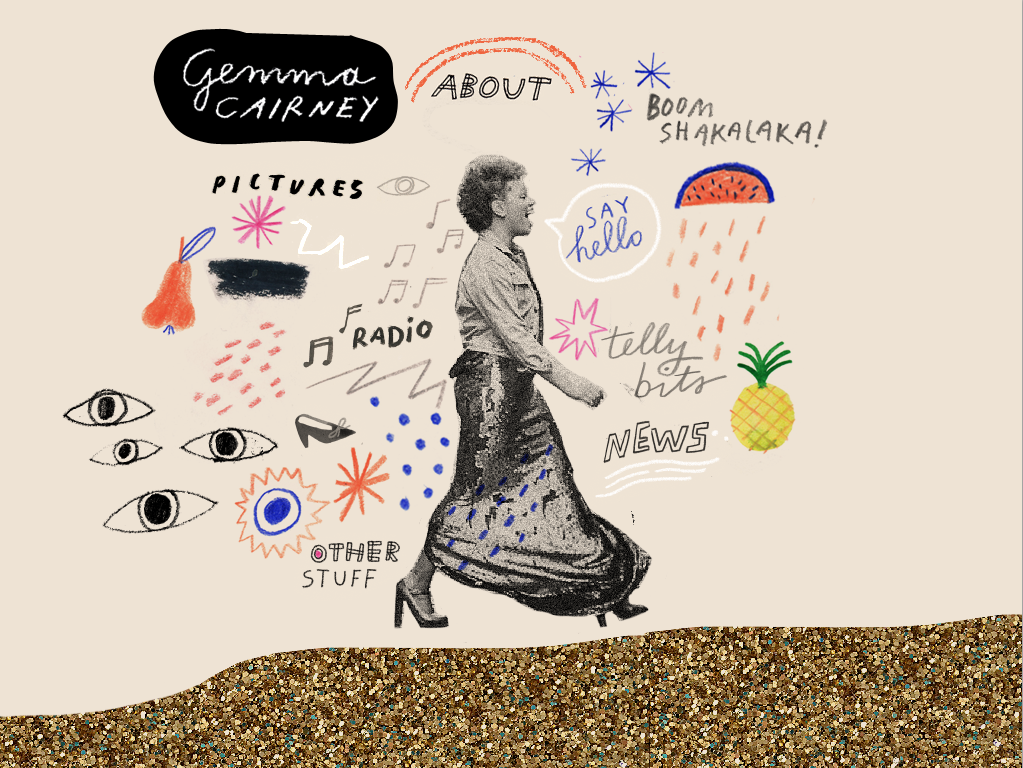 Gemma
CAIRNEY
ABOUT
BOOM
SHAKALAKA!
PICTURES
SAY
hello
RADIO
telly
bits
NEWS
OTHER
STUFF